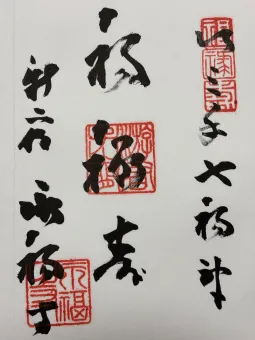 山之手七福神
福禄寿
新宿
永福寺